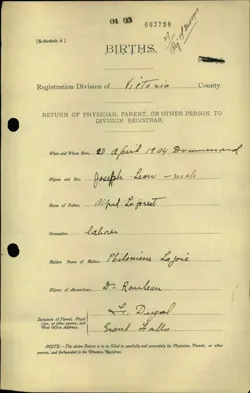 04 03 003790
[Schedule A]
BIRTHS.
Registration Division of Victoria County.
RETURN OF PHYSICIAN, PARENT, OR OTHER PERSON TO
DIVISION REGISTRAR.
When and Where Born. 20 April 1904 Drummond
Name and Sex. Joseph Leon - male
Name of Father. Alfred Laforest
Occupation laborer
Maiden Name of Mother. Philomene Lajoie
Name of Accoucheur. Dr Rouleau
Signature of Parent, Physi-
cian, or other person, and
Post Office Address.
L. Dugal
Grand Falls
NOTE.—The above Return is to be filled in carefully and accurately by Physician, Parent, or other
person, and forwarded to the Division Registrar.